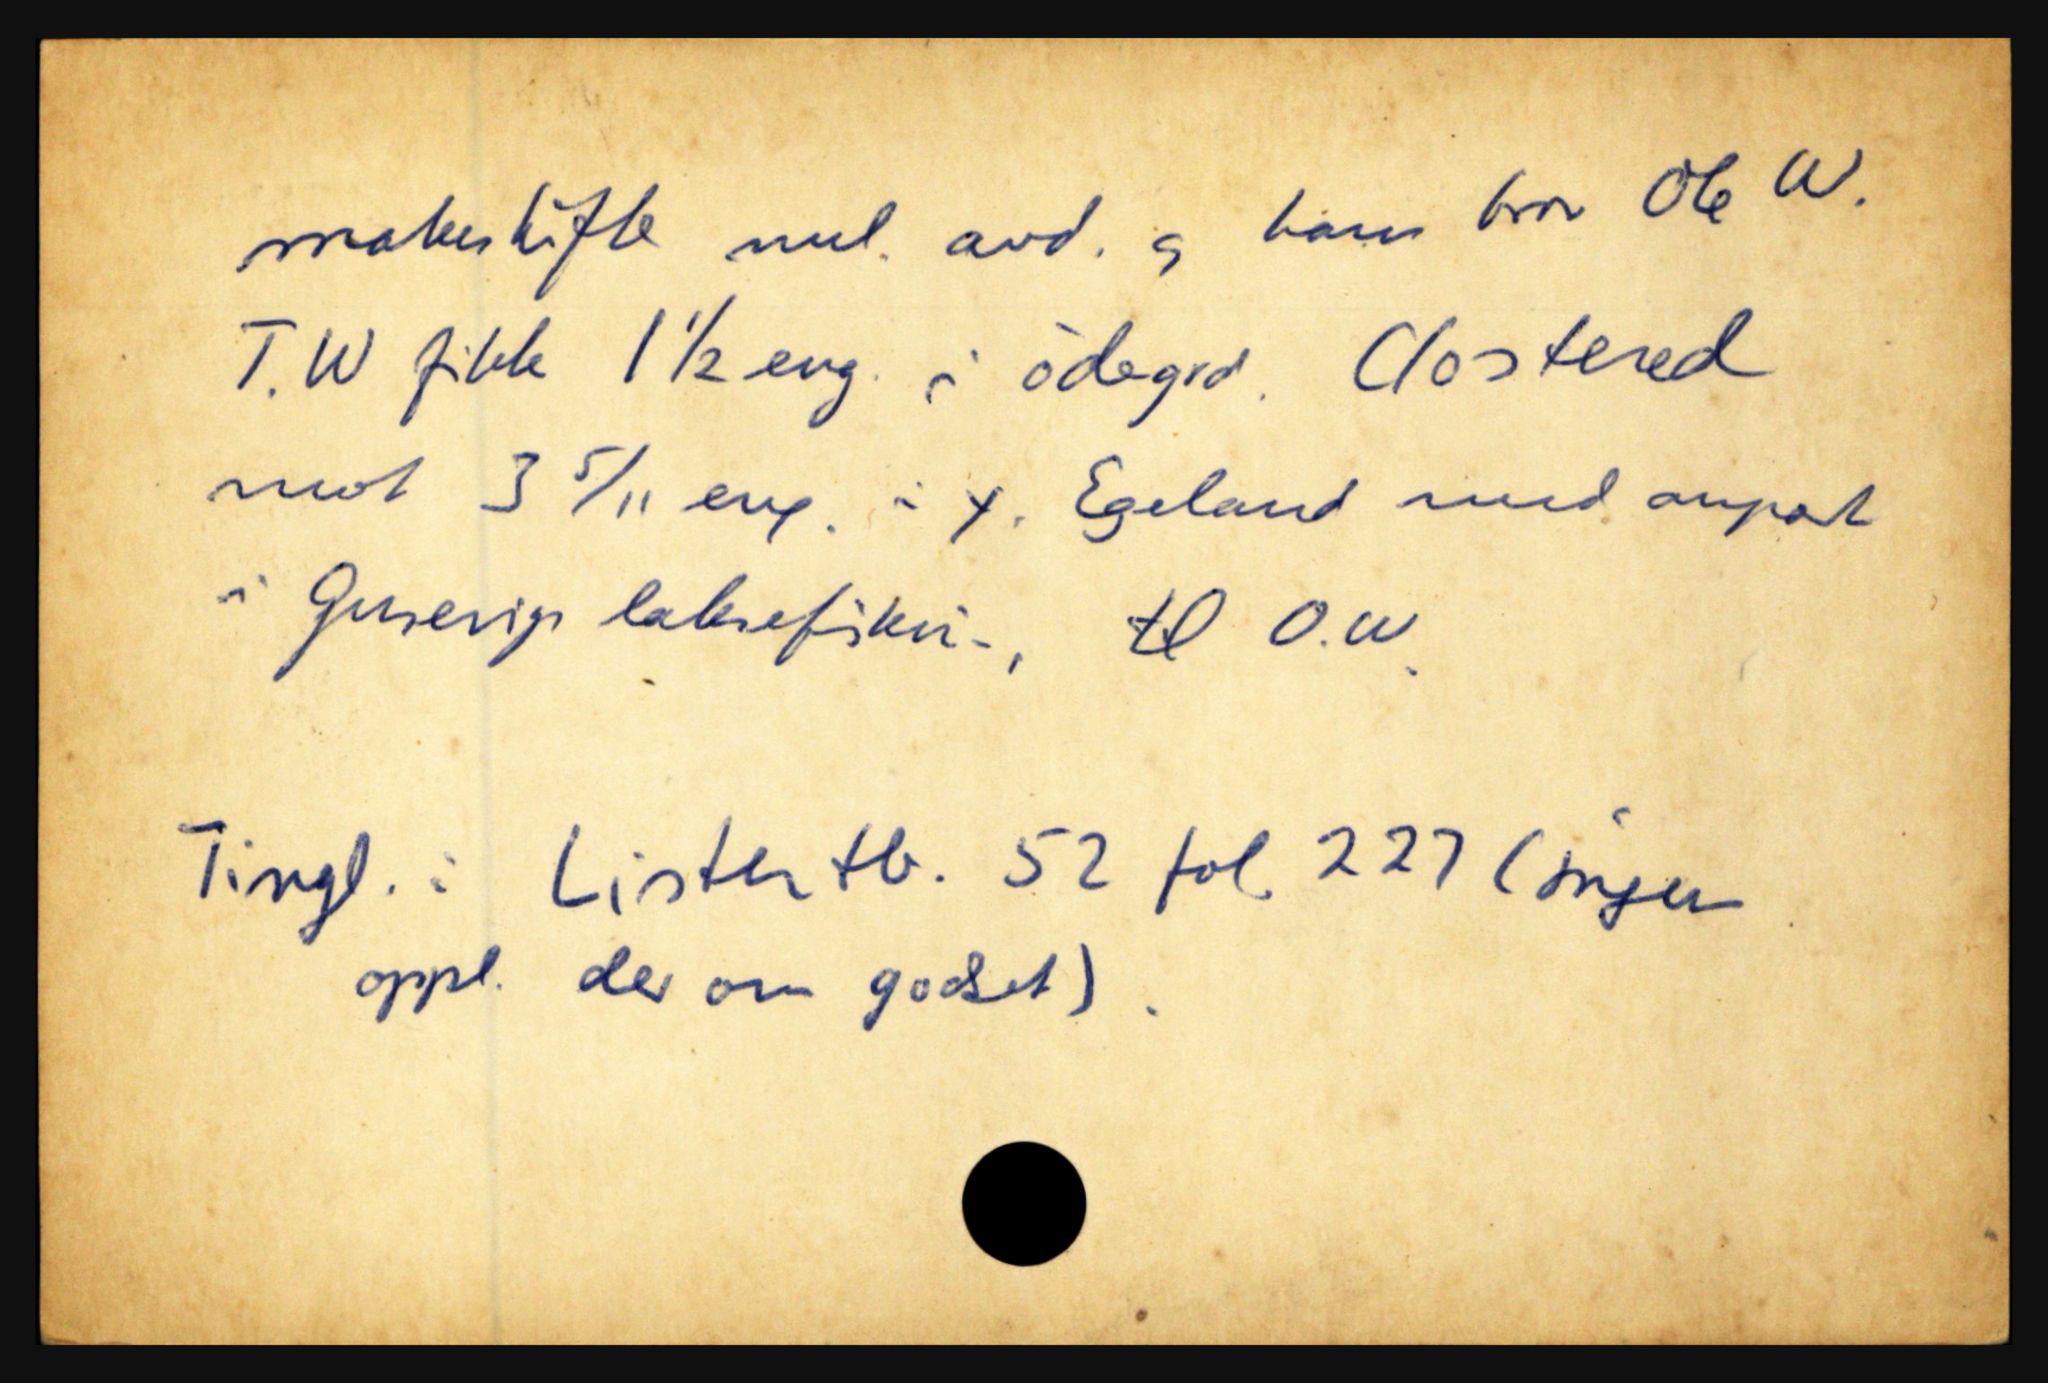 makeskifte mel. avd. og hans bror Ole W.
T.W fikk 1 1/2 eng. i ödegrd. Clostered
mot 3 5/11 eng. i y. Egeland med anpart
i Guservigs laksefiskeri, til O.W.
Tingl. i Lister tb. 52 fol 227 (ingen
oppl. der om godset).